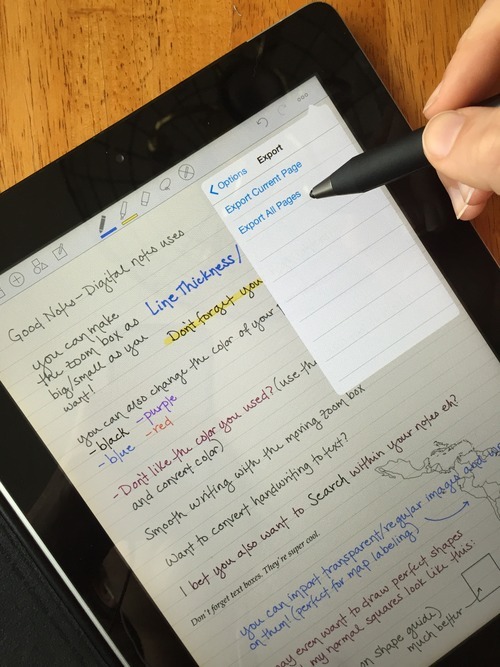 Options
Export
Export Current Page
Export All Pages
Good Notes - Digital notes uses
you can make
the zoom box as
big/small as you
want!
Line Thickness/
Don't forget you
you can also change the color of your
- black - purple
- blue - red
- Don't like the color you used? (use the
and convert color)
Smooth writing with the moving zoom box
Want to convert handwriting to text?
I bet you also want to Search within your notes eh?
Don't forget text boxes. They're super cool.
you can import transparent/regular images and
on them! (perfect for map labeling)
may even want to draw perfect shapes
my normal squares look like this:
on shape guide)
much better